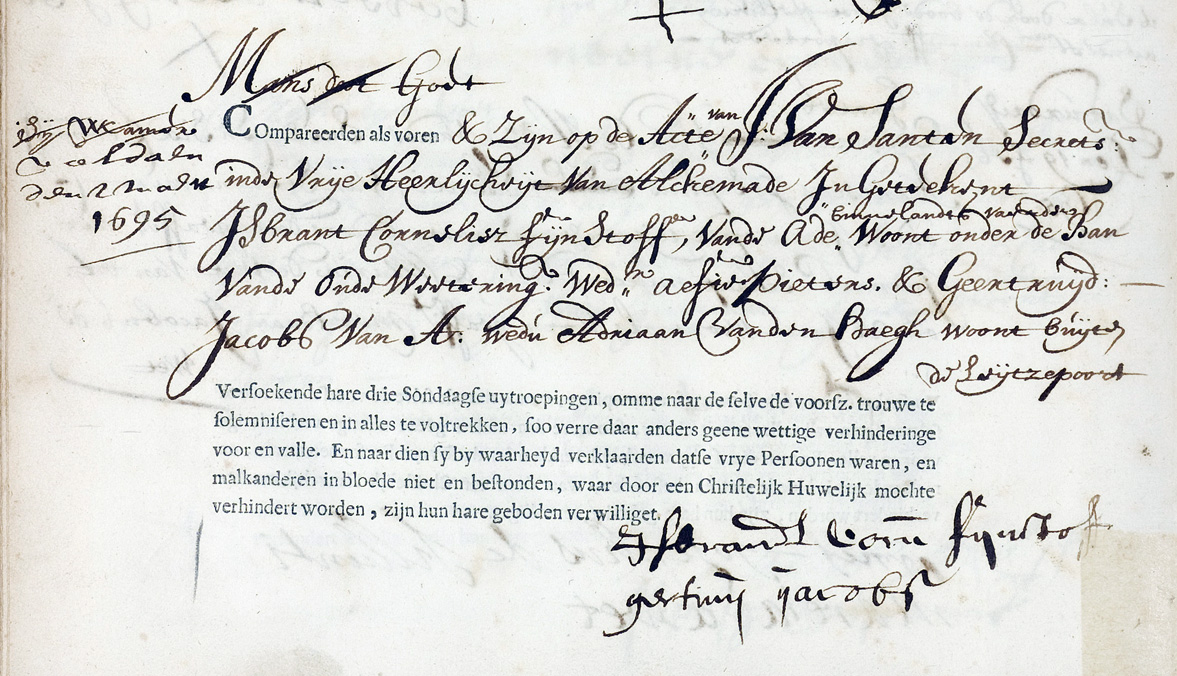 Mans doot Godt
Compareerden als voren & Zijn op de Acte van J: Van Santen Secrets:
inde Vrije Heerlijcheijt Van Alckemade In Geteekent
den 2 Maert
1695
Binnelandts vaerder
IJsbrant Cornelisz Fijnstoff, Vande Ade, Woont onder de Ban
Vande Oude Weetering. Wedr Aefie Pieters. & Geertruijd:
Jacobs Van A: wedu Adriaan Vanden Baegh woont buijten
de Leijtzepoort
Versoekende hare drie Sondaagse uytroepingen, omme naar de selve de voorsz. trouwe te
solemniseren en in alles te voltrekken, soo verre daar anders geene wettige verhinderinge
voor en valle. En naar dien sy by waarheyd verklaarden datse vrye Persoonen waren, en
malkanderen in bloede niet en bestonden, waar door een Christelijk Huwelijk mochte
verhindert worden, zijn hun hare geboden verwilliget.
IJsbrandt Corn Fijnstof
gertruij ijacobs